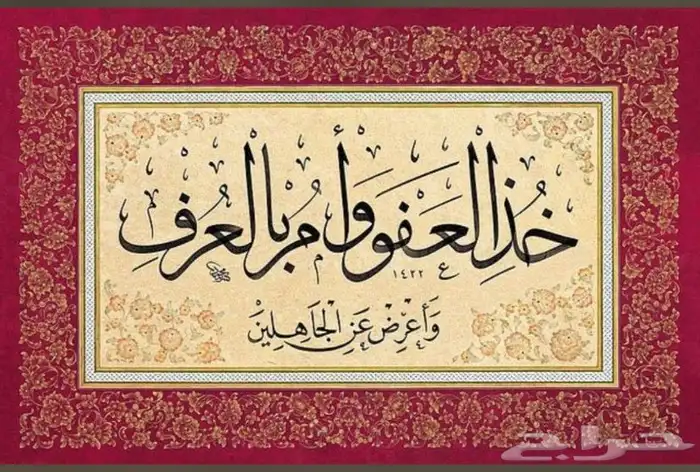 خُذِ الْعَفْوَ وَأْمُرْ بِالْعُرْفِ
١٤٢٢
وَأَعْرِضْ عَنِ الْجَاهِلِينَ
حراج